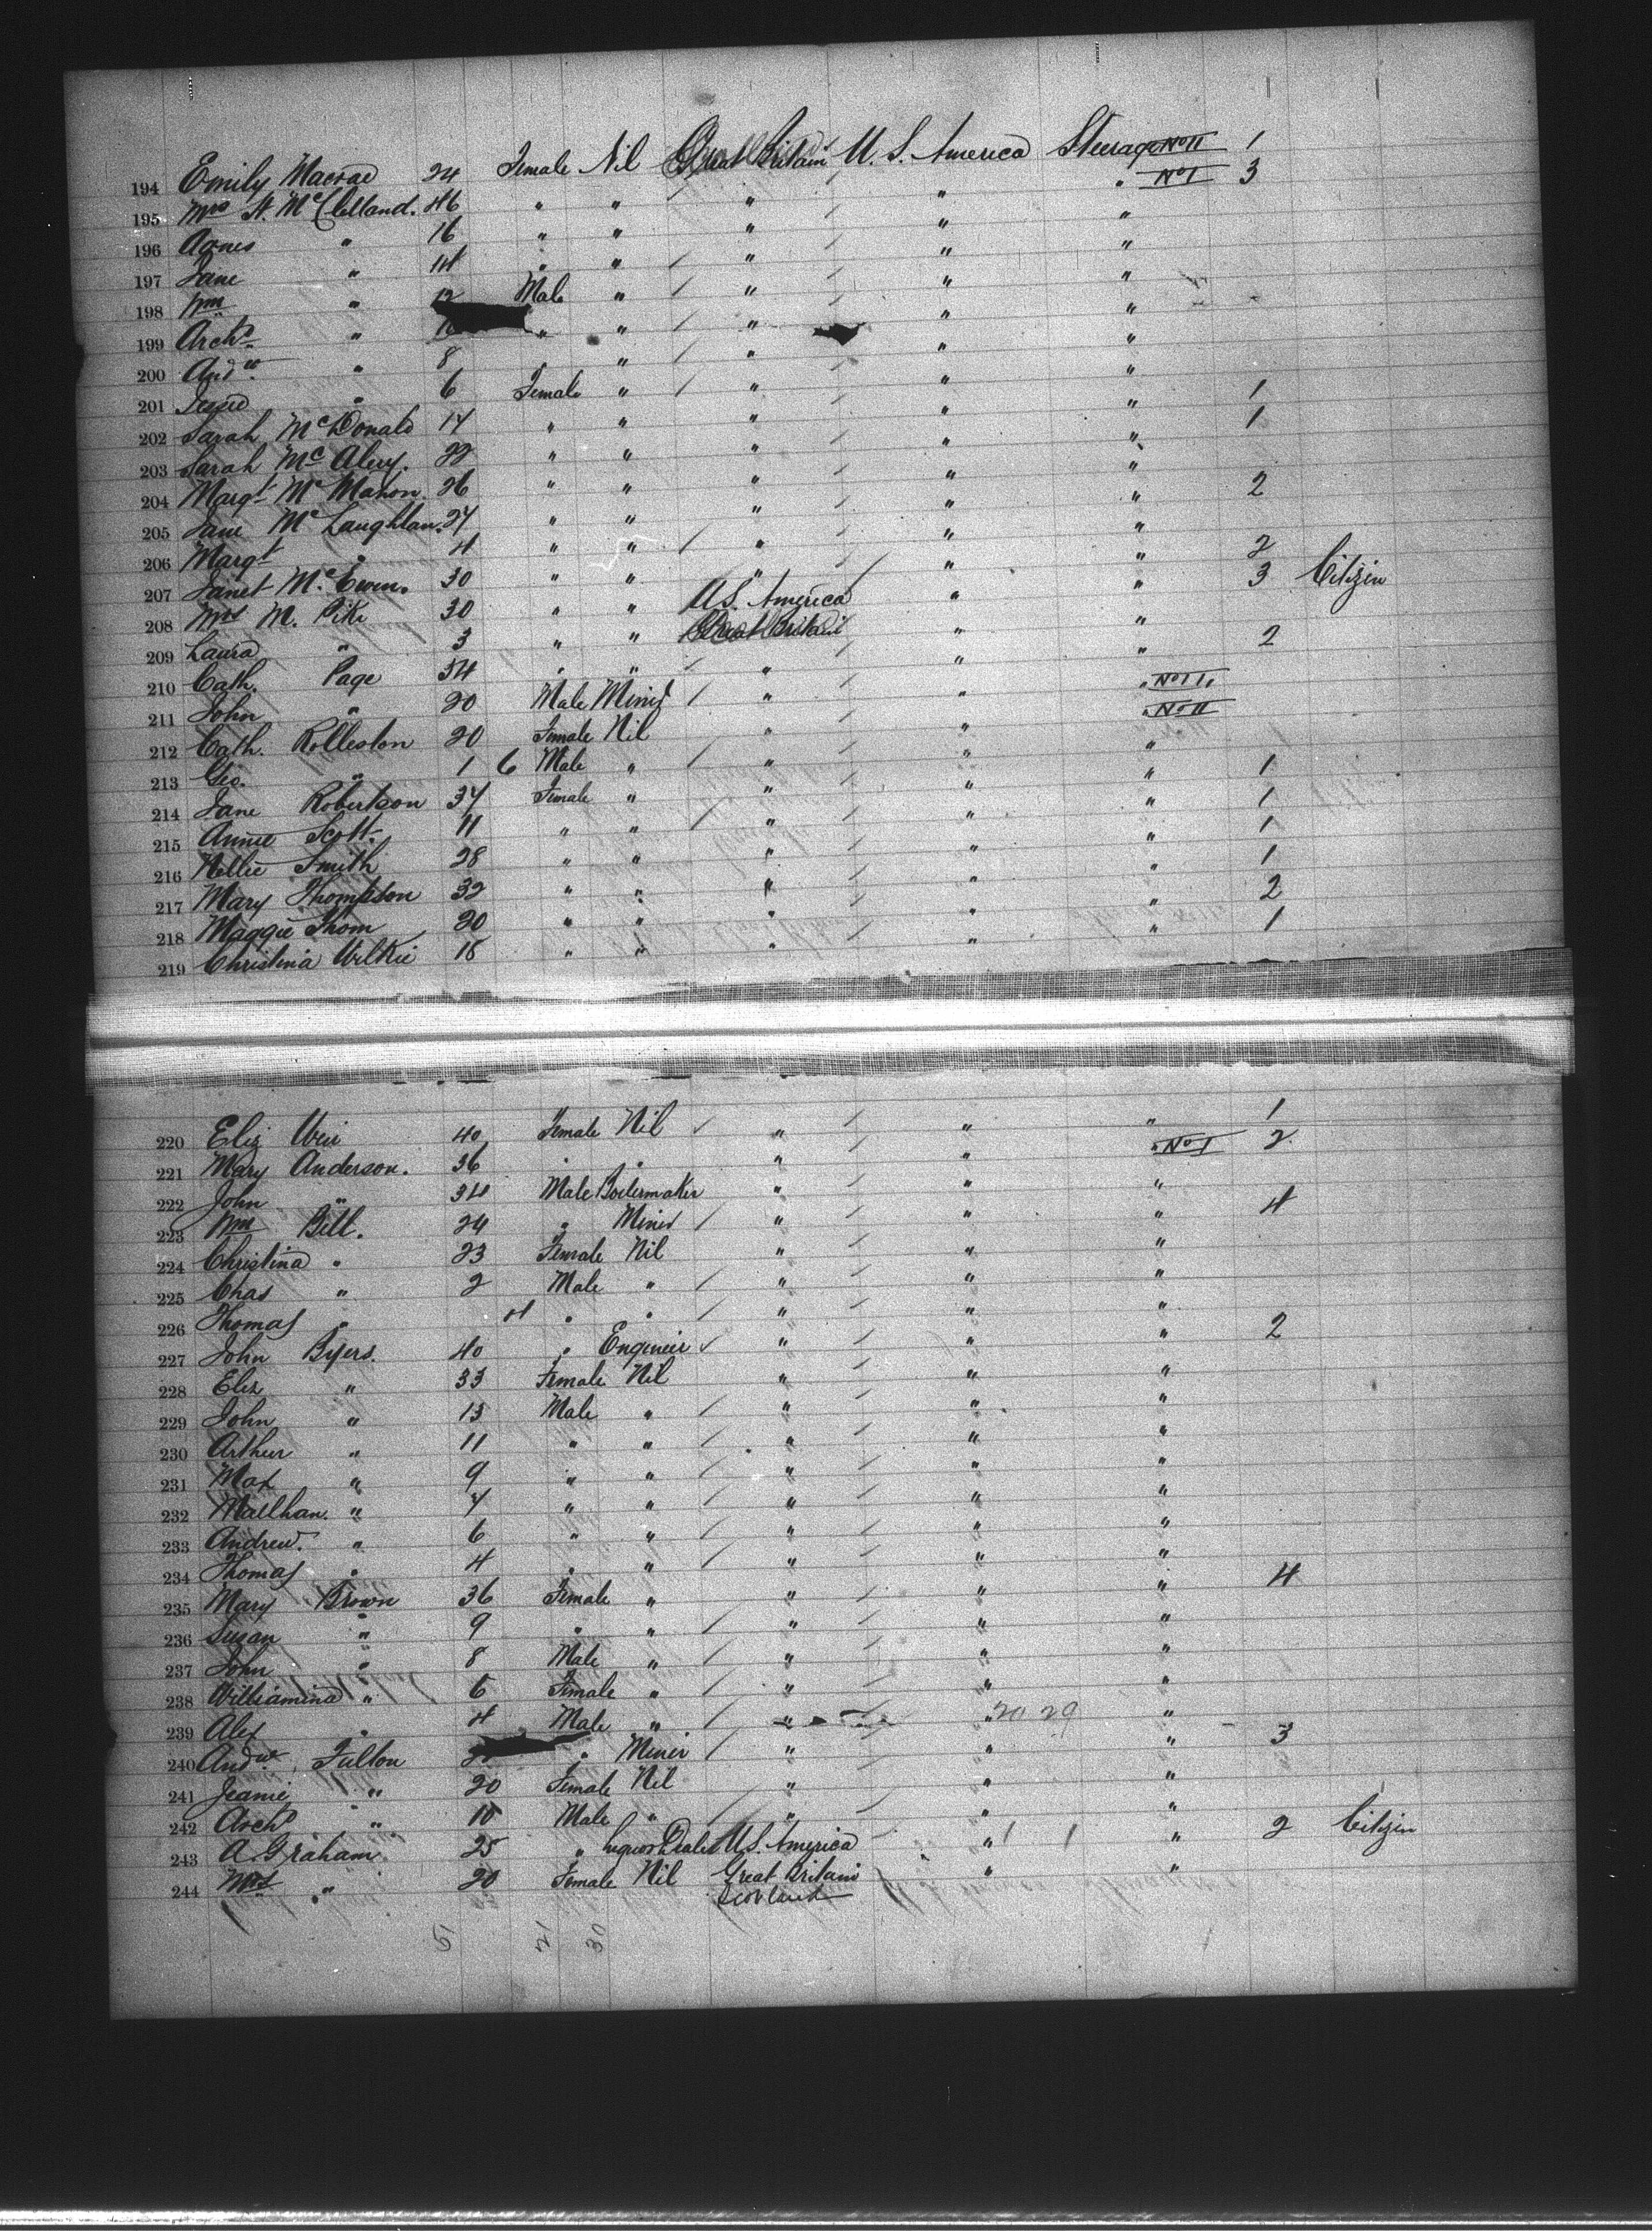 194 Emily Macrae 24 Female Nil Great Britain U. S. America Steerage No II 1
195 Mrs H. McClelland. 46 " " " " " No I 3
196 Agnes " 16 " " " " "
197 Jane " 14 " " " " "
198 Wm " 12 Male " " " "
199 Archd " " " " " "
200 Andw " 8 " " " "
201 Jessie " 6 Female " " " "
202 Sarah McDonald 17 " " " " " 1
203 Sarah McAlery. 22 " " " " " 1
204 Margt McMahon. 26 " " " " "
205 Jane McLaughlan. 27 " " " " " 2
206 Margt " 4 " " " " "
207 Janet McEwen. 30 " " " " " 2
208 Mrs M. Pike 30 " " U.S. America " " 3 Citizin
209 Laura " 3 " " Great Britain " "
210 Cath. Page 34 " " " " " 2
211 John " 20 Male Miner " " " No II
212 Cath. Rolleston 20 Female Nil " " " No II
213 Geo. " 1 6 Male " " " "
214 Jane Robertson 37 Female " " " " 1
215 Annie Scott. 11 " " " " " 1
216 Nellie Smith 28 " " " " " 1
217 Mary Thompson 32 " " " " " 1
218 Maggie Thom 20 " " " " " 2
219 Christina Wilkie 18 " " " " " 1
220 Eliz Weir 40 Female Nil " " " 1
221 Mary Anderson. 36 " " " " " No I 2
222 John " 34 Male Boilermaker " " "
223 Wm Bell. 24 " Miner " " " 4
224 Christina " 23 Female Nil " " "
225 Chas " 2 Male " " " "
226 Thomas " 4 " " " " "
227 John Byers. 40 " Engineer " " " 2
228 Eliz " 33 Female Nil " " "
229 John " 13 Male " " " "
230 Arthur " 11 " " " " "
231 Max " 9 " " " " "
232 " 7 " " " " "
233 Andrew. " 6 " " " " "
234 Thomas " 4 " " " " "
235 Mary Brown 36 Female " " " " 4
236 Susan " 9 " " " " "
237 John " 8 Male " " " "
238 Williamina " 6 Female " " " "
239 Alex " 4 Male " " " 20 29 "
240 Andw. Fulton " Miner " " " 3
241 Jeanie " 20 Female Nil " " "
242 Archd " 10 Male " " " "
243 A. Graham. 25 " Liquor Dealer U.S. America " " 2 Citizin
244 Mrs " 20 Female Nil Great Britain " "
Scotland
51 21 30